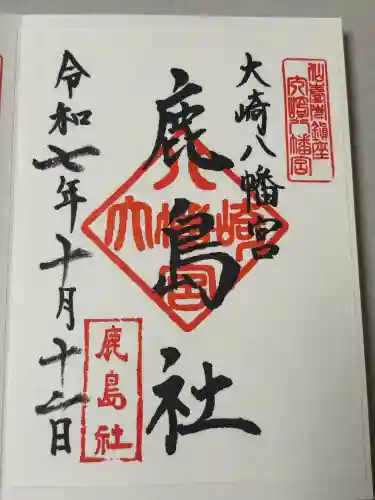 仙臺城鎮座
大崎八幡宮
大崎八幡宮
鹿島社
大崎八幡宮
鹿島社
令和七年十月十二日